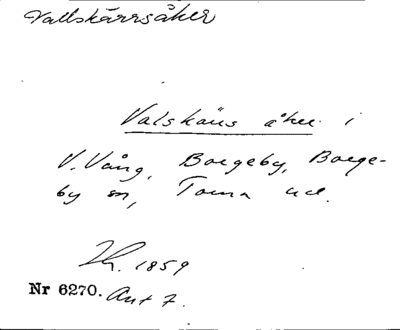 Vallskärrsåker
Valskärs åker i
V. Vång, Borgeby, Borge-
by sn, Torna hd.
1859
Nr 6270. Avt 7.